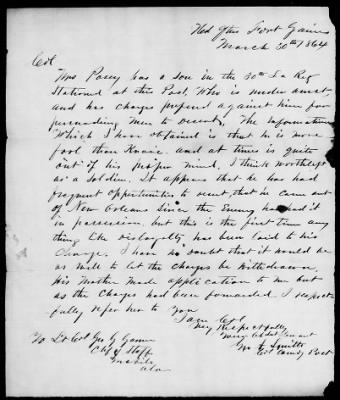 Hed Qtrs Fort Gaines
March 30th 1864
Col
Mrs Posey has a son in the 30th La Reg
Stationed at this Post, Who is under arrest
and has charges prefered against him for
persuading men to desert. The information
Which I have obtained is that he is more
fool than Knave and at times is quite
out of his proper mind. I think worthless
as a Soldier. It appears that he has had
frequent opportunities to desert that he came out
of New Orleans Since the Enemy has had it
in possession, but this is the first time any
thing like disloyalty has been laid to his
Charge. I have no doubt that it would be
as well to let the charges be withdrawn,
his Mother made application to me but
as the Charges had been forwarded I respect
fully refer her to You
I am Col
Very Respectfully
Your obdt Servant
To Lt Col Geo G Garner
Chf of Staff
Mobile
Ala
Col Comdg Post